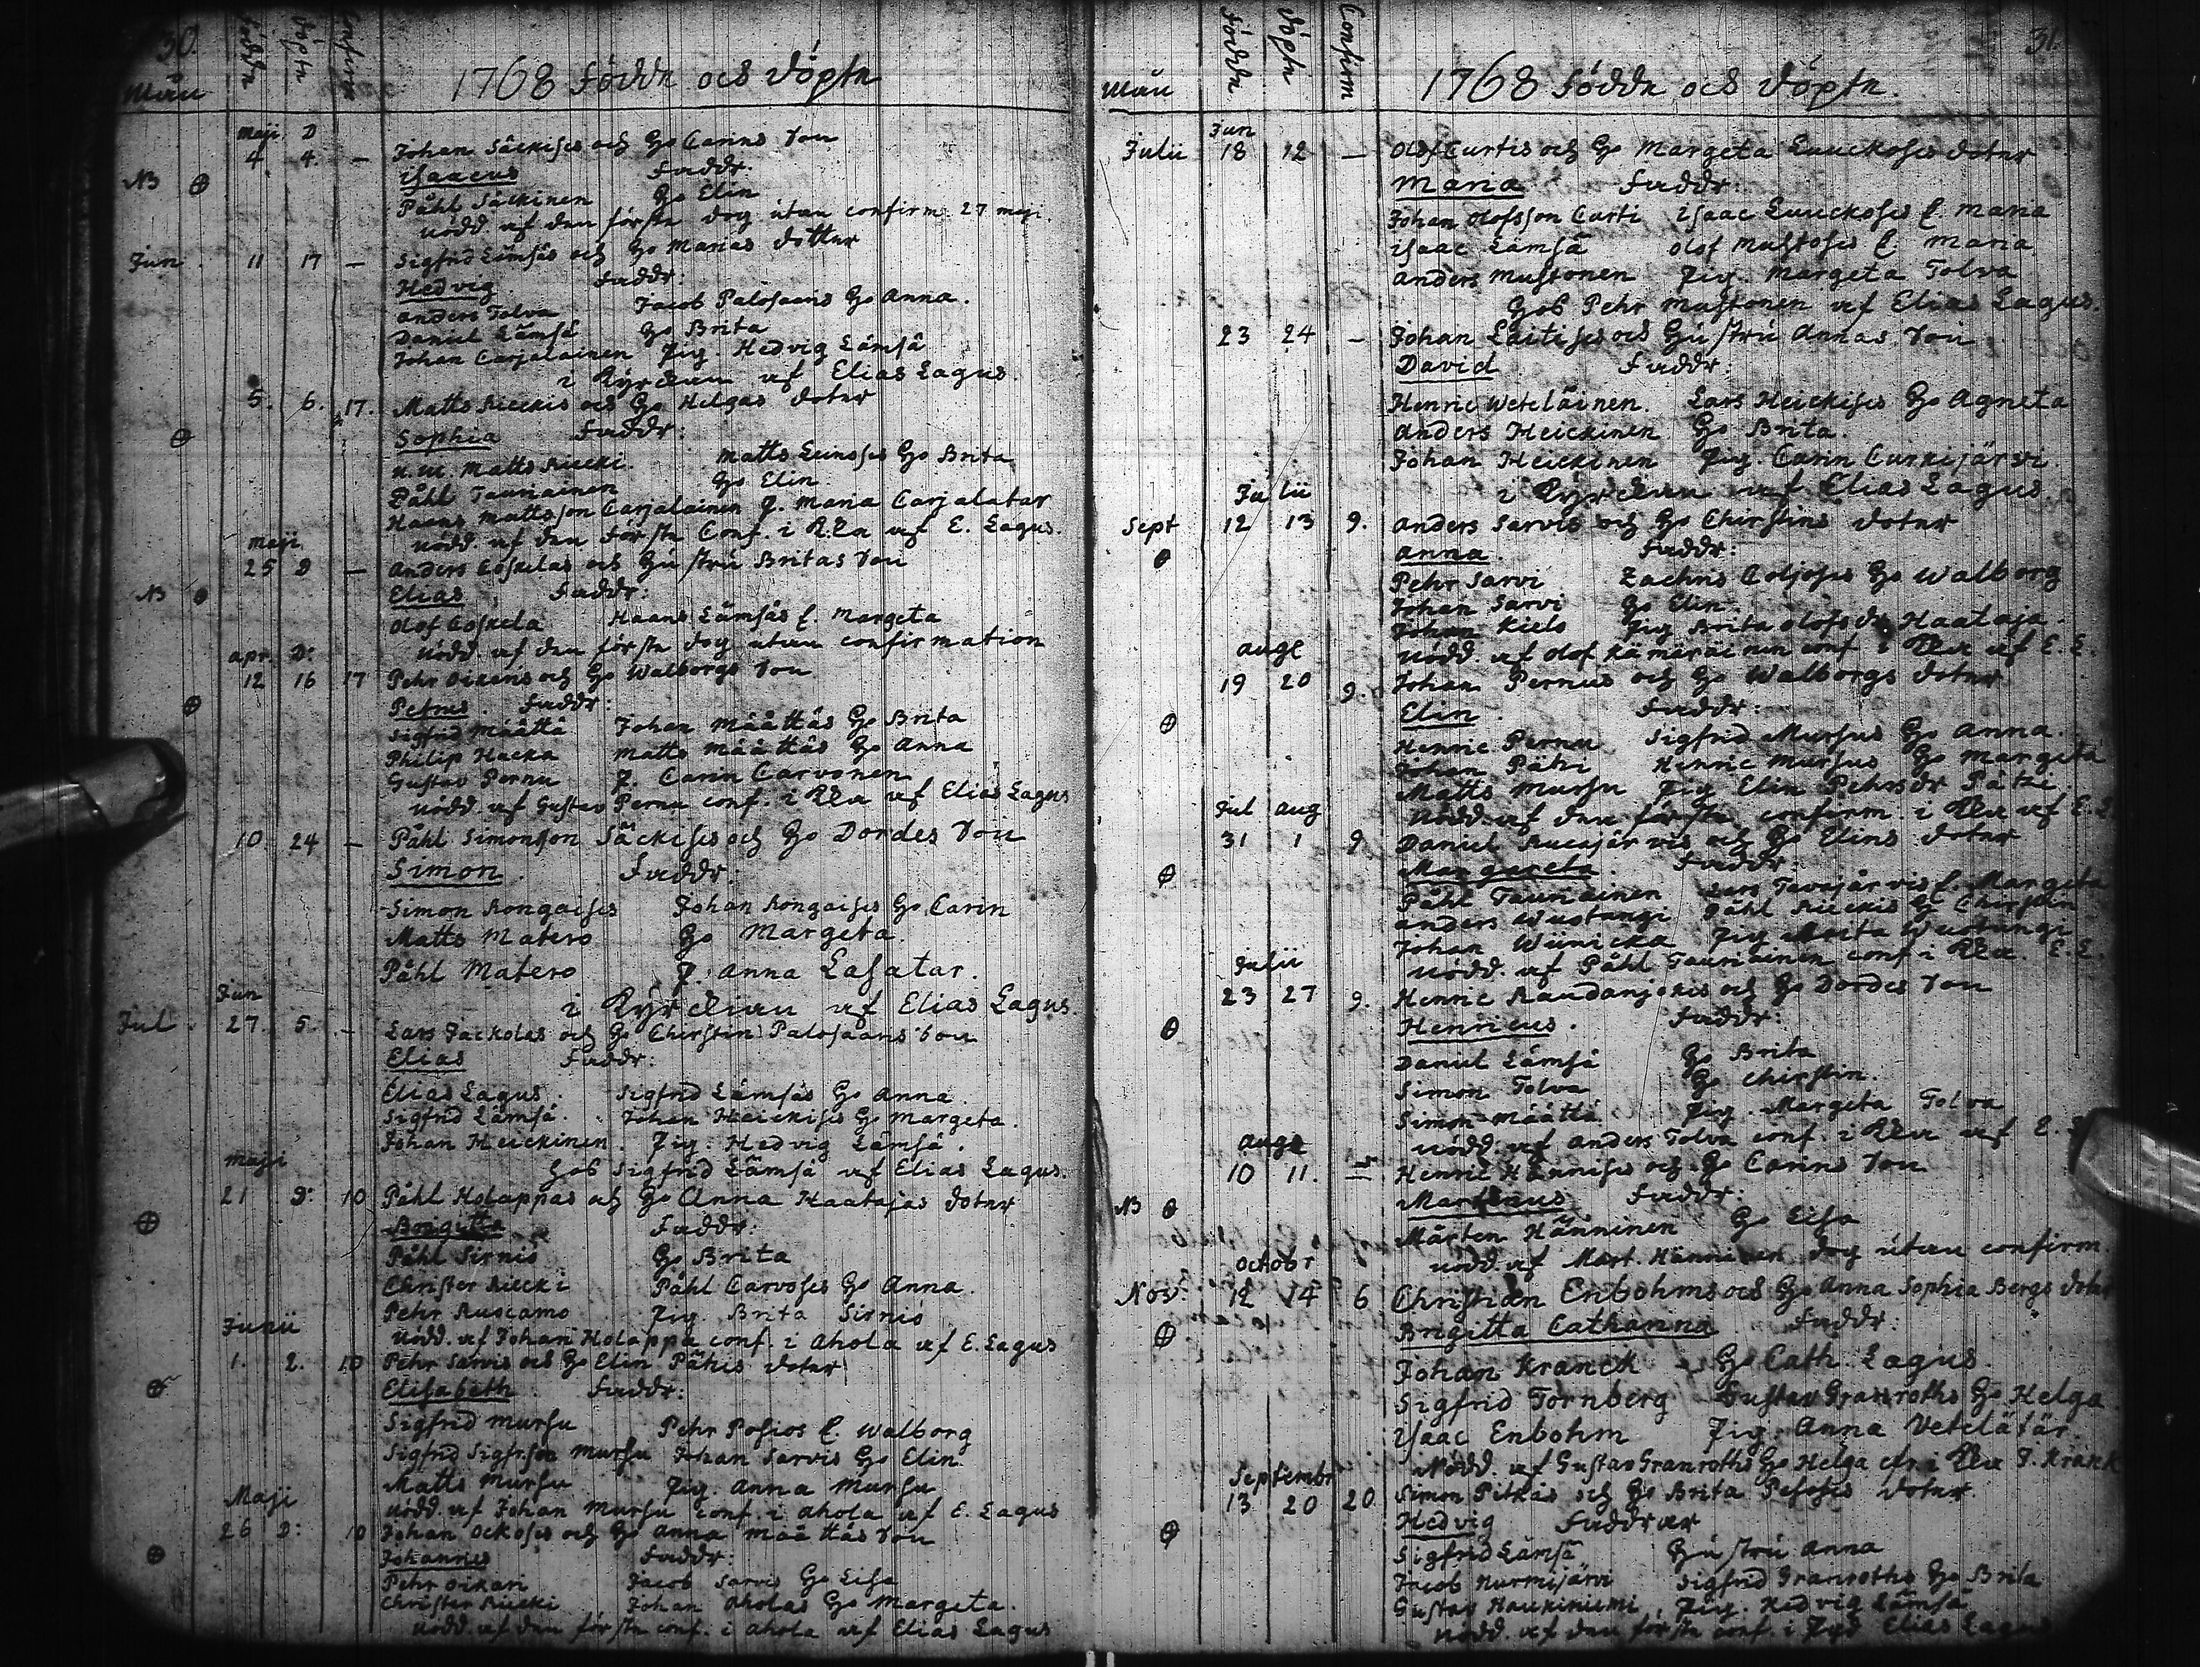 30.
Mån Födde Döpte Confirm
1768 Födde och Döpte
Maji D
4. 4. — Johan Säckises och Ho Carins Son
NB Isaacus Faddr.
Påhl Säckinen Ho Elin
Nödd. af den förste dog utan confirm. 27 maji
Jun. 11 17 — Sigfrid Lämsäs och Ho Marias dotter
Hedvig. Faddr.
Anders Tolva Jacob Palosaaris Ho Anna.
Daniel Lämsä Ho Brita
Johan Carjalainen Pig. Hedvig Lämsä
i Kyrckian af Elias Lagus.
5. 6. 17. Matts Rieckis och Ho Helgas dotter
Sophia Faddr:
Matts Riecki. Matts Leinoses Ho Brita
Påhl Tauriainen Ho Elin
Hans Mattsson Carjalainen P. Maria Carjalatar
Nödd. af den förste Conf. i Kka af E. Lagus.
Maji
25 D — Anders Coskelas och Hustru Britas Son
NB Elias Faddr:
Olof Coskela Haans Lämsäs E. Margeta
Nödd. af den förste dog utan confirmation
Apr. D:
12 16 17 Pehr Oikaris och Ho Walborgs Son
Petrus. Faddr:
Sigfrid Määttä Johan Määttäs Ho Brita
Philip Hacka Matts Määttäs Ho Anna
Gustav Pernu P. Carin Carvonen
Nödd. af Gustav Pernu conf. i Kka af Elias Lagus
10. 24 — Påhl Simonsson Säckises och Ho Dordes Son
Simon. Faddr:
Simon Kongaises Johan Rongaises Ho Carin
Matts Matero Ho Margeta.
Påhl Matero P. Anna Lasatar.
i Kyrckian af Elias Lagus
Jun
Jul. 27. 5. — Lars Jackolas och Ho Chirstin Palosaaris Son
Elias Faddr:
Elias Lagus. Sigfrid Lämsäs Ho Anna.
Sigfrid Lämsä. Johan Heickises Ho Margeta.
Johan Heickinen. Pig. Hedvig Lämsä.
Hos Sigfrid Lämsä af Elias Lagus.
Maji
21 D: 10 Påhl Holappas och Ho Anna Haatajas doter
Brigitta Faddr:
Påhl Sirniö Ho Brita
Christer Riecki Påhl Carvoses Ho Anna.
Pehr Ruscamo Pig. Brita Sirniö
Nödd. af Johan Holappa conf. i Ahola af E. Lagus
Junii
1. 2. 10 Pehr Sarvis och Ho Elin Pätzis doter
Elisabeth. Faddr:
Sigfrid Mursu Pehr Posios E. Walborg
Sigfrid Sigfrson Mursu Johan Sarvis Ho Elin
Matts Mursu Pig. Anna Mursu
Nödd. af Johan Mursu conf. i Ahola af E. Lagus
Maji
26 D: 10 Johan Ockoses och Ho Anna Määttäs Son
Johannes Faddr:
Pehr Oikari Jacob Sarvis Ho Lisa
Christer Riecki Johan Aholas Ho Margeta.
Nödd. af den förste conf. i Ahola af Elias Lagus
31.
Mån Födde Döpte Confirm
1768 Födde och Döpte.
Jun
Julii 18 12 — Olof Curtis och Ho Margeta Luuckoses doter
Maria Faddr:
Johan Olofsson Curti Isaac Luuckoses E. Maria
Isaac Lämsä Olof Mustoses E. Maria
Anders Mustonen Pig. Margeta Tolva
Hos Pehr Mustonen af Elias Lagus.
23 24 — Johan Laitises och Hustru Annas Son
David Faddr:
Henric Weteläinen. Lars Heickises Ho Agneta
Anders Heickinen Ho Brita.
Johan Heickinen Pig. Carin Curkijärvi
i Kyrckian af Elias Lagus
Julii
Sept 12 13 9. Anders Sarvis och Ho Chirstins doter
Anna. Faddr:
Pehr Sarvi Zachris Coljoses Ho Walborg
Johan Sarvi Ho Elin.
Johan Kielo Pig Brita Olofsdr Haataja.
Nödd. af Olof Kämäräinen conf. i Kka af E. L.
Auge
19 20 9. Johan Pernus och Ho Walborgs doter
Elin. Faddr:
Henric Pernu Sigfrid Mursus Ho Anna.
Johan Pätzi Henric Mursus Ho Margeta
Matts Mursu Pig Elin Pehrsdr Pätzi
Nödd. af den förste confirm. i Kka af E. L.
Jul Aug
31 1 9 Daniel Rucajärvis och Ho Elins doter
Margareta. Faddr:
Påhl Tauriainen Lars Tavajärvis E. Margeta
Anders Wuotungi Påhl Rieckis Ho Chirstin
Johan Winicka Pig Brita Wuotungi
Nödd. af Påhl Tauriainen conf. i Kka. E. L.
Julii
23 27 9. Henric Raudanjokis och Ho Dordes Son
Henricus. Faddr:
Daniel Lämsä Ho Brita
Simon Tolva Ho Chirstin.
Simon Määttä Pig. Margeta Tolva
Nödd. af Anders Tolva conf. i Kka af E. L
Auge
10 11. — Henric Hännises och Ho Carins Son
NB Martinus Faddr:
Mårten Hänninen Ho Lisa
Nödd. af Mårt. Hänninen dog utan confirm.
Octobr
Nov. 12 14 6 Christian Enbohms och Ho Anna Sophia Bergs doter
Brigitta Catharina Faddr:
Johan Kranck Ho Cath Lagus.
Sigfrid Tornberg Gustav Granroths Ho Helga
Isaac Enbohm Pig. Anna Vetelätär.
Nödd. af Gustav Granroths Ho Helga cfr i Kka J. Kranck
Septembr
13 20 20. Simon Pitkäs och Ho Brita Pesoses doter
Hedvig Faddrar
Sigfrid Lämsä Hustru Anna
Jacob Nurmijärvi Sigfrid Granroths Ho Brita
Gustav Haukiniemi Pig. Hedvig Lämsä
Nödd. af den förste conf. i Elias Lagus